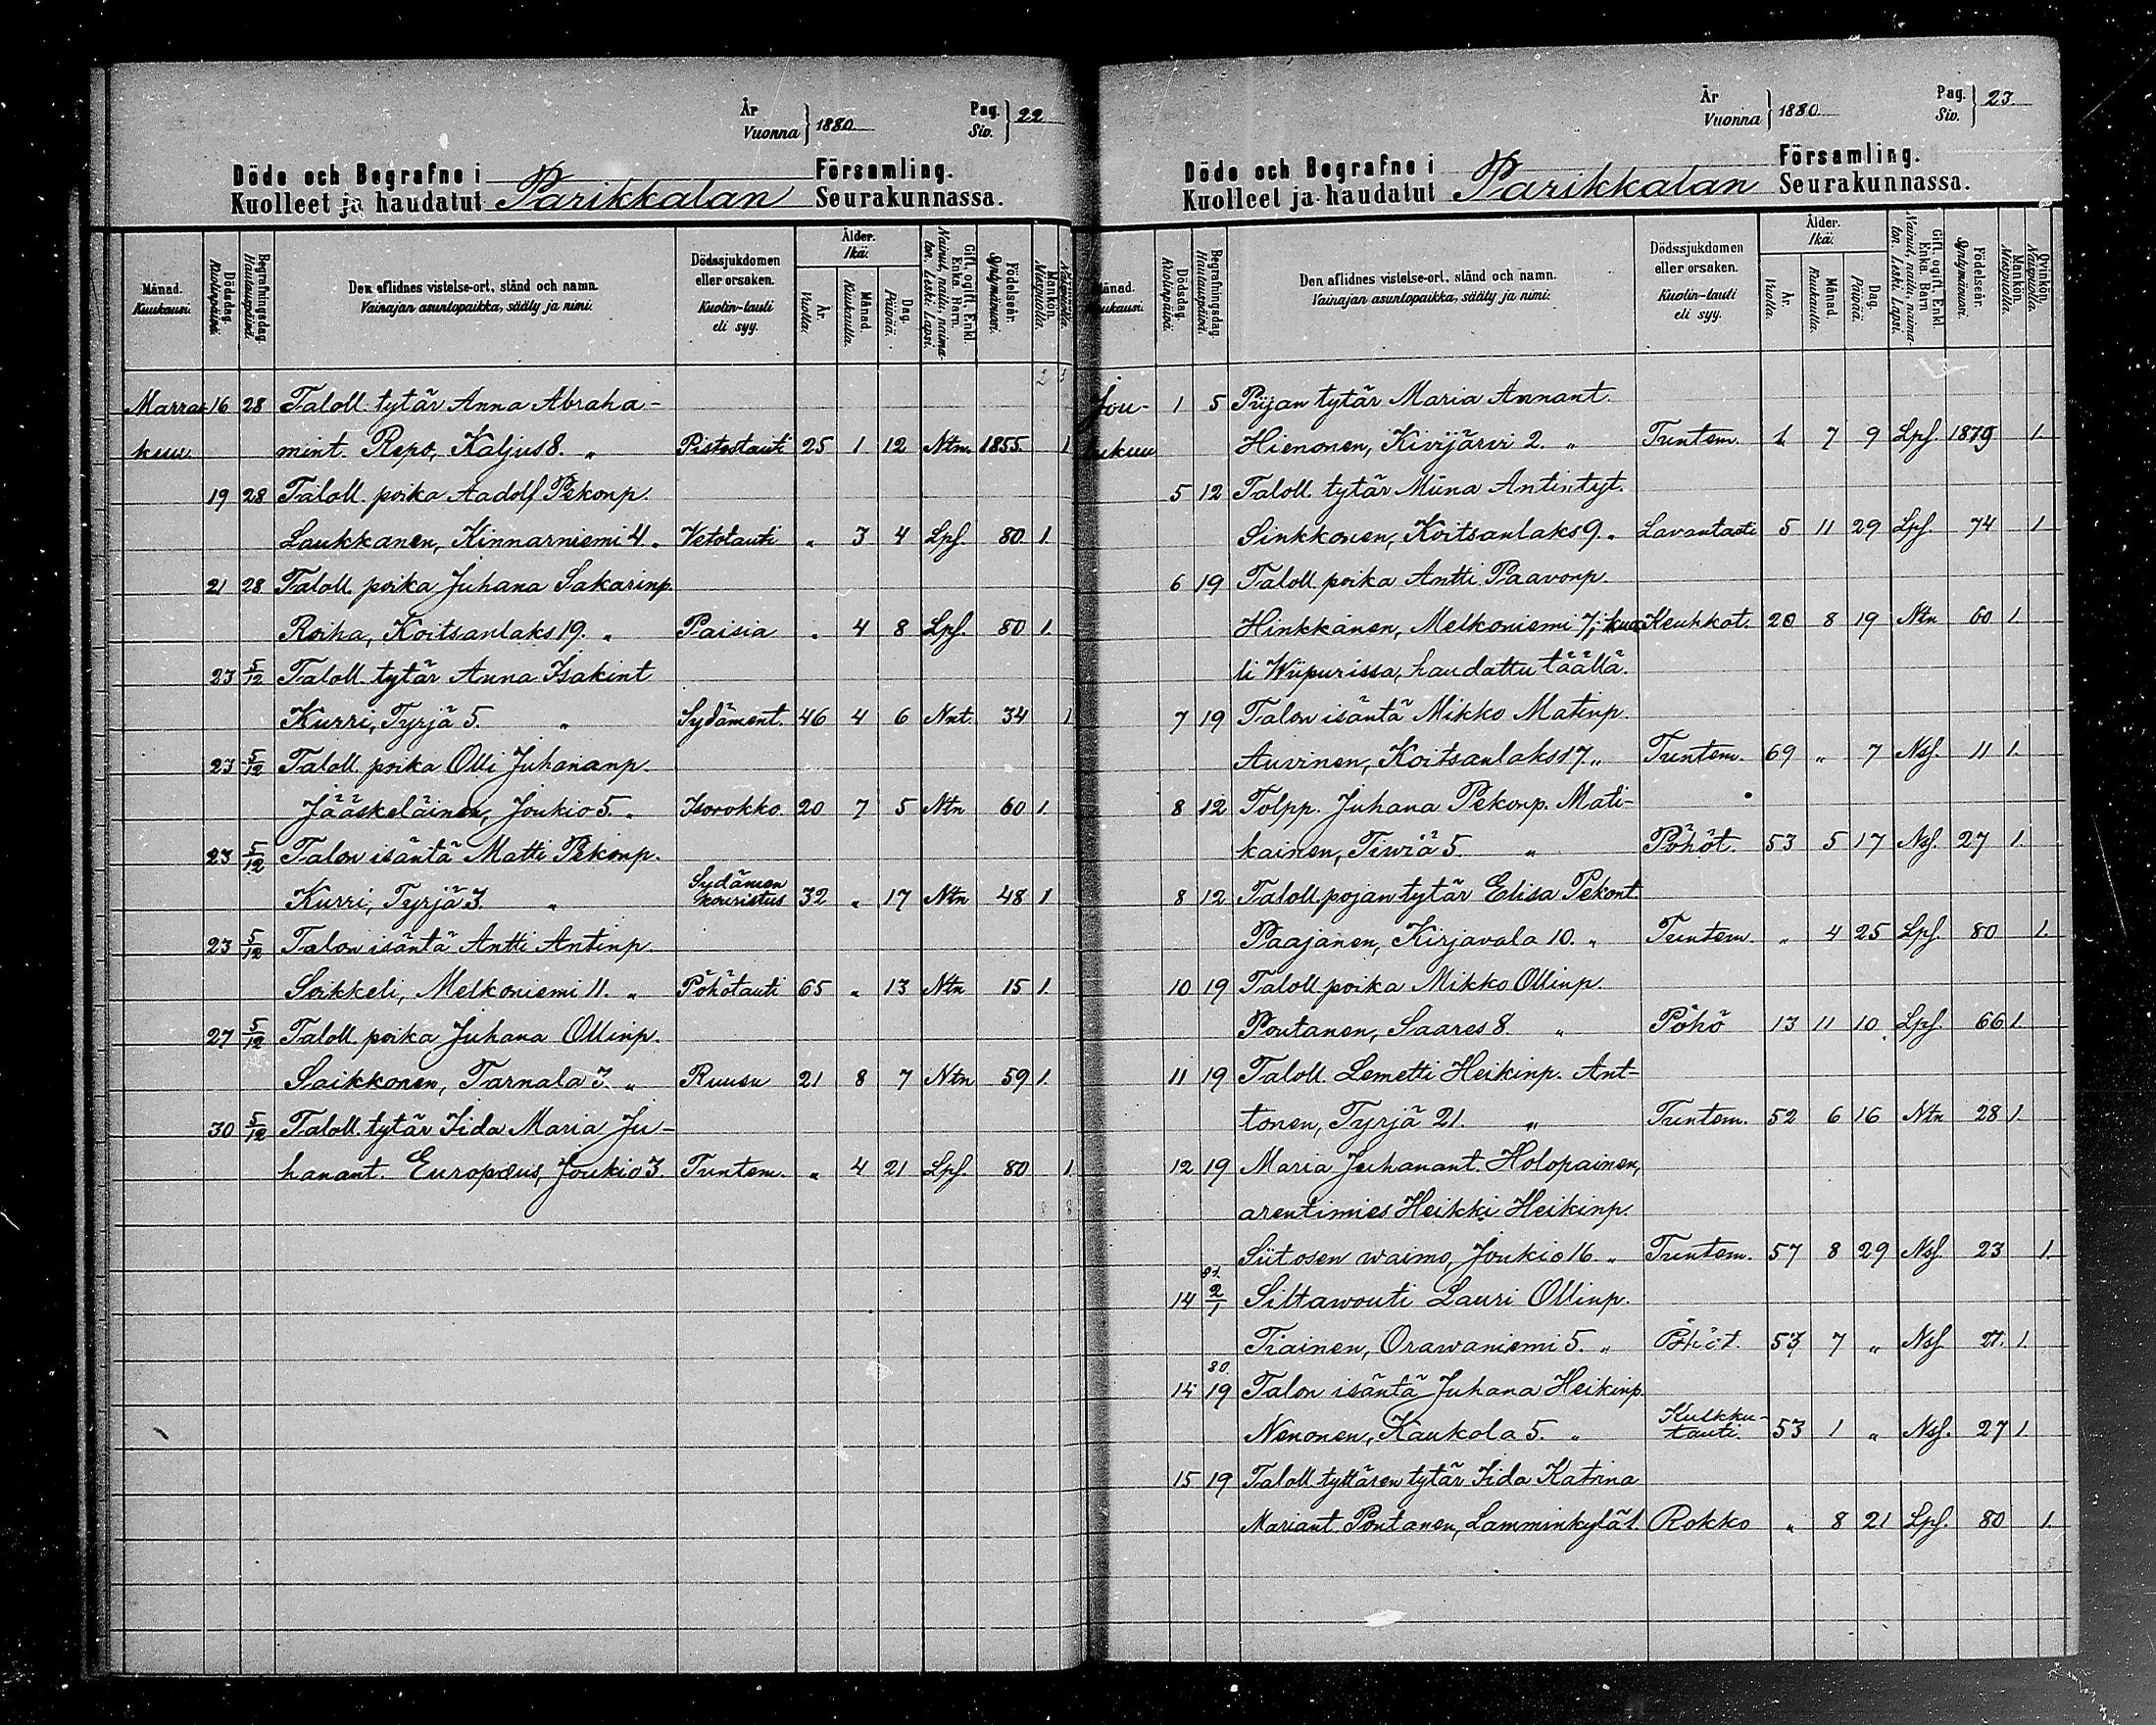 År
Vuonna } 1880. Pag.
Siv. } 22
Döde och Begrafne i Församling.
Kuolleet ja haudatut Parikkalan Seurakunnassa.
Månad. Kuukausi. Dödsdag. Kuolinpäivä. Begrafningsdag. Hautauspäivä. Den aflidnes vistelse-ort, stånd och namn. Vainajan asuntopaikka, sääty ja nimi. Dödssjukdomen eller orsaken. Kuolin-tauti eli syy. Ålder. Ikä. År. Vuotta. Månad. Kuukautta. Dag. Päivää. Gift, ogift, Enkl. Enka. Barn. Nainut, natu, naimaton. Leski. Lapsi. Födelseår. Syntymävuosi. Mankön. Miespuolia.
Marras- 16 28 Taloll. tytär Anna Abraha-
kuu. mint. Repo, Kaljus 8. „ Pistostauti 25 1 12 Ntn. 1855. 1
19 28 Taloll. poika Aadolf Pekonp.
Laukkanen, Kinnarniemi 4. „ Vetotauti „ 3 4 Lps. 80. 1.
21 28 Taloll. poika Juhana Sakarinp.
Roiha, Koitsanlaks 19. „ Paisia „ 4 8 Lps. 80 1.
23 5/12 Taloll. tytär Anna Isakint
Kurri, Tyrjä 5. „ Sydäment. 46 4 6 Nnt. 34 1
23 5/12 Taloll. poika Olli Juhananp.
Jääskeläinen, Joukio 5. „ Isorokko 20 7 5 Ntn 60 1.
23 5/12 Talon isäntä Matti Pekonp.
Kurri, Tyrjä 3. „ Sydämen kouristus 32 „ 17 Ntn 48 1
23 5/12 Talon isäntä Antti Antinp.
Soikkeli, Melkoniemi 11. „ Pöhötauti 65 „ 13 Ntn 15 1.
27 5/12 Taloll. poika Juhana Ollinp.
Saikkonen, Tarnala 3. „ Ruusu 21 8 7 Ntn 59 1.
30 5/12 Taloll. tytär Iida Maria Ju-
hanant. Europæus, Joukio 3. Tuntem. „ 4 21 Lps. 80 1.
År
Vuonna } 1880. Pag.
Siv. } 23
Döde och Begrafne i Församling.
Kuolleet ja haudatut Parikkalan Seurakunnassa.
Månad. Kuukausi. Dödsdag. Kuolinpäivä. Begrafningsdag. Hautauspäivä. Den aflidnes vistelse-ort, stånd och namn. Vainajan asuntopaikka, sääty ja nimi. Dödssjukdomen eller orsaken. Kuolin-tauti eli syy. Ålder. Ikä. År. Vuotta. Månad. Kuukautta. Dag. Päivää. Gift, ogift, Enkl. Enka. Barn Nainut, natu, naimaton. Leski. Lapsi. Födelseår. Syntymävuosi. Mankön. Miespuolia. Qvinkön. Naispuolia.
Jou- 1 5 Piijan tytär Maria Annant.
lukuu Hienonen, Kivijärvi 2. „ Tuntem. 1. 7 9 Lps. 1879 1.
5 12 Taloll. tytär Miina Antintyt.
Sinkkonen, Koitsanlaks 9. „ Lavantauti 5 11 29 Lps. 74 1
6 19 Taloll. poika Antti Paavonp.
Hinkkanen, Melkoniemi 7; kuo- Keuhkot. 20 8 19 Ntn 60 1.
li Wiipurissa, haudattu täällä.
7 19 Talon isäntä Mikko Matinp.
Auvinen, Koitsanlaks 17. „ Tuntem. 69 „ 7 Nsf. 11 1.
8 12 Tolpp. Juhana Pekonp. Mati-
kainen, Tiwiä 5. „ Pöhöt. 53 5 17 Nsf. 27 1.
8 12 Taloll. pojan tytär Elisa Pekont.
Paajanen, Kirjavala 10. „ Tuntem. „ 4 25 Lps. 80 1.
10 19 Taloll. poika Mikko Ollinp.
Poutanen, Saares 8. „ Pöhö 13 11 10 Lps. 66 1.
11 19 Taloll. Lemetti Heikinp. Ant-
tonen, Tyrjä 21. „ Tuntem. 52 6 16 Ntn 28 1.
12 19 Maria Juhanant. Holopainen,
arentimies Heikki Heikinp.
Siitosen waimo, Joukio 16. „ Tuntem. 57 8 29 Nsf. 23 1.
81.
14 2/1 Siltawouti Lauri Ollinp.
Tiainen, Orawaniemi 5. „ Pöhöt. 53 7 „ Nsf. 27. 1.
80.
14 19 Talon isäntä Juhana Heikinp.
Nenonen, Kaukola 5. „ Kulkku-tauti. 53 1 „ Nsf. 27 1
15 19 Taloll. tyttären tytär Iida Katrina
Mariant. Pontanen, Lamminkylä 1. Rokko „ 8 21 Lps. 80 1.